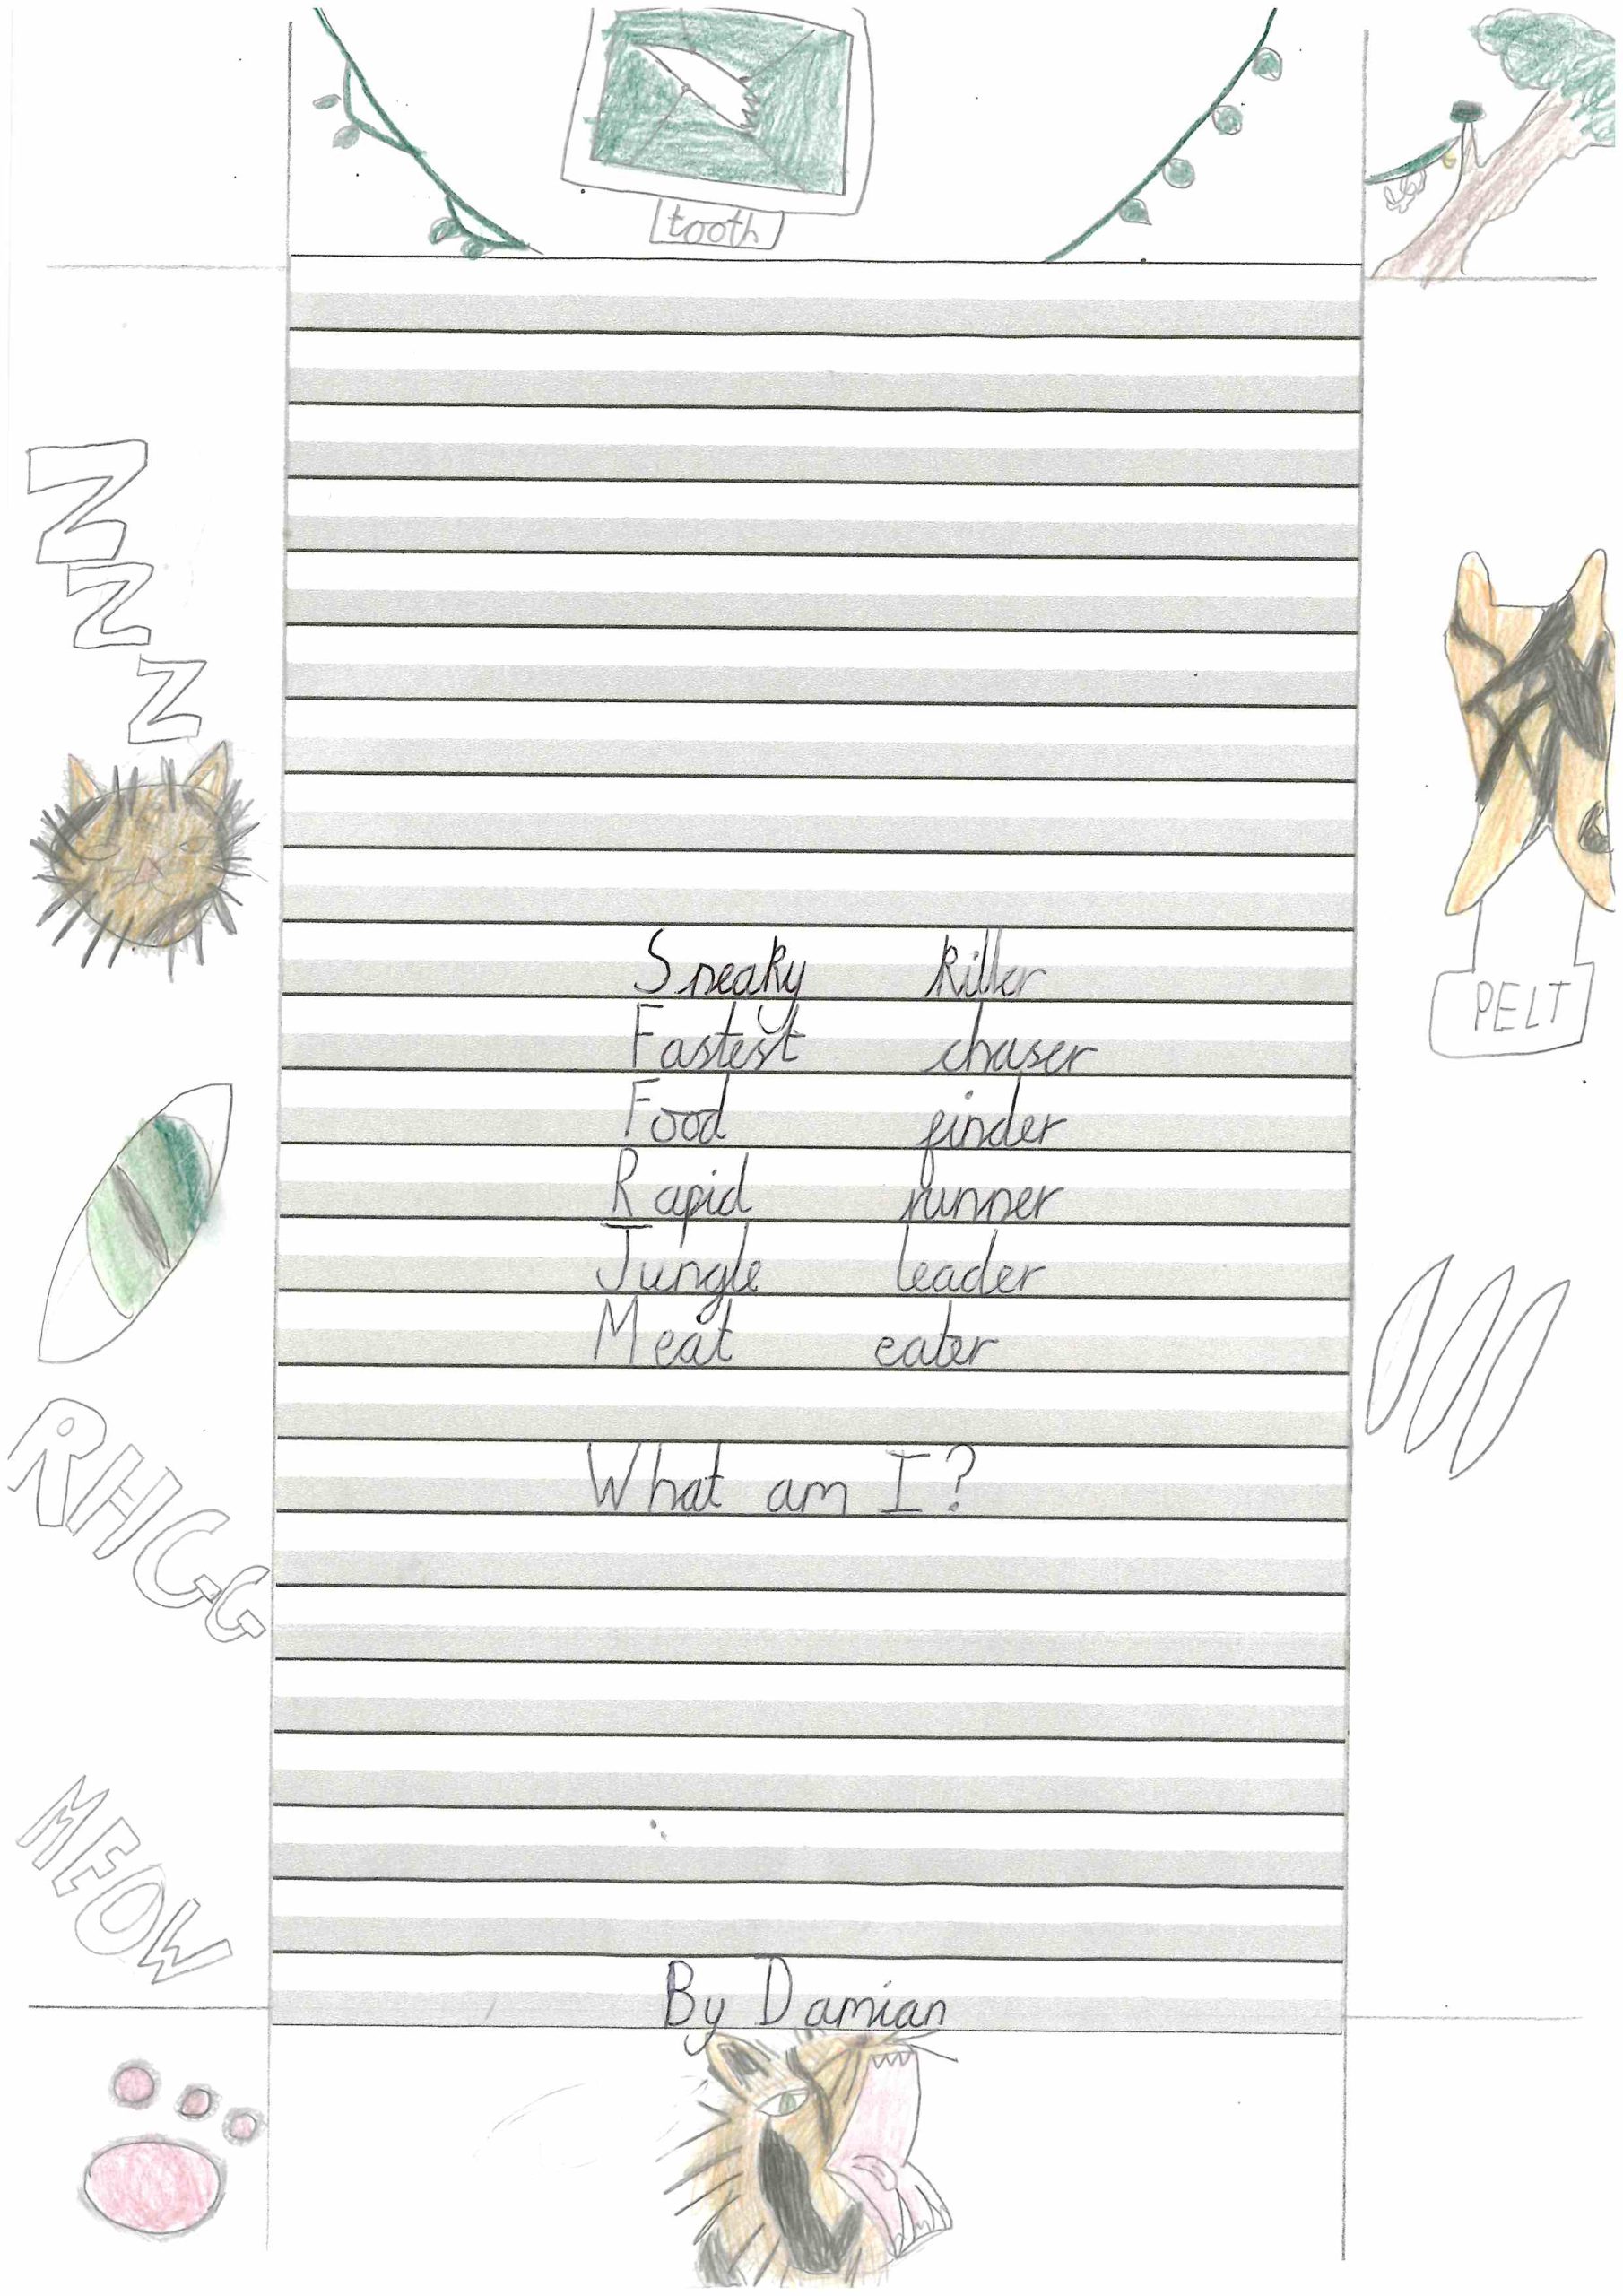 tooth
Z
Z
Z
Sneaky killer
Fastest chaser
Food finder
Rapid runner
Jungle leader
Meat eater
What am I?
PELT
RHGG
MEOW
By Damian